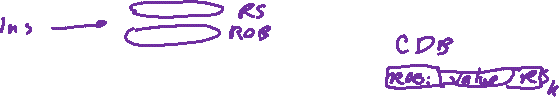 Ins
RS
ROB
CDB
ROB: value RS